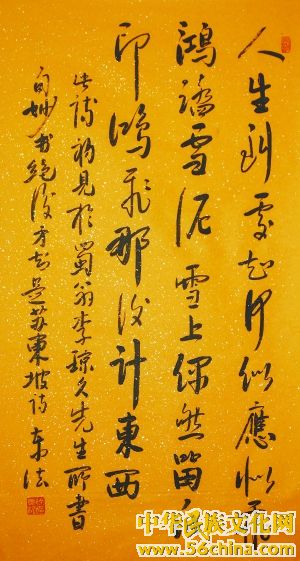 人生到處知何似應似飛
鴻踏雪泥雪上偶然留爪
印鴻飛那復計東西
此詩初見於蜀翁李琼久先生所書
句妙書絕後方知是蘇東坡詩 东法
中华民族文化网
www.56china.com